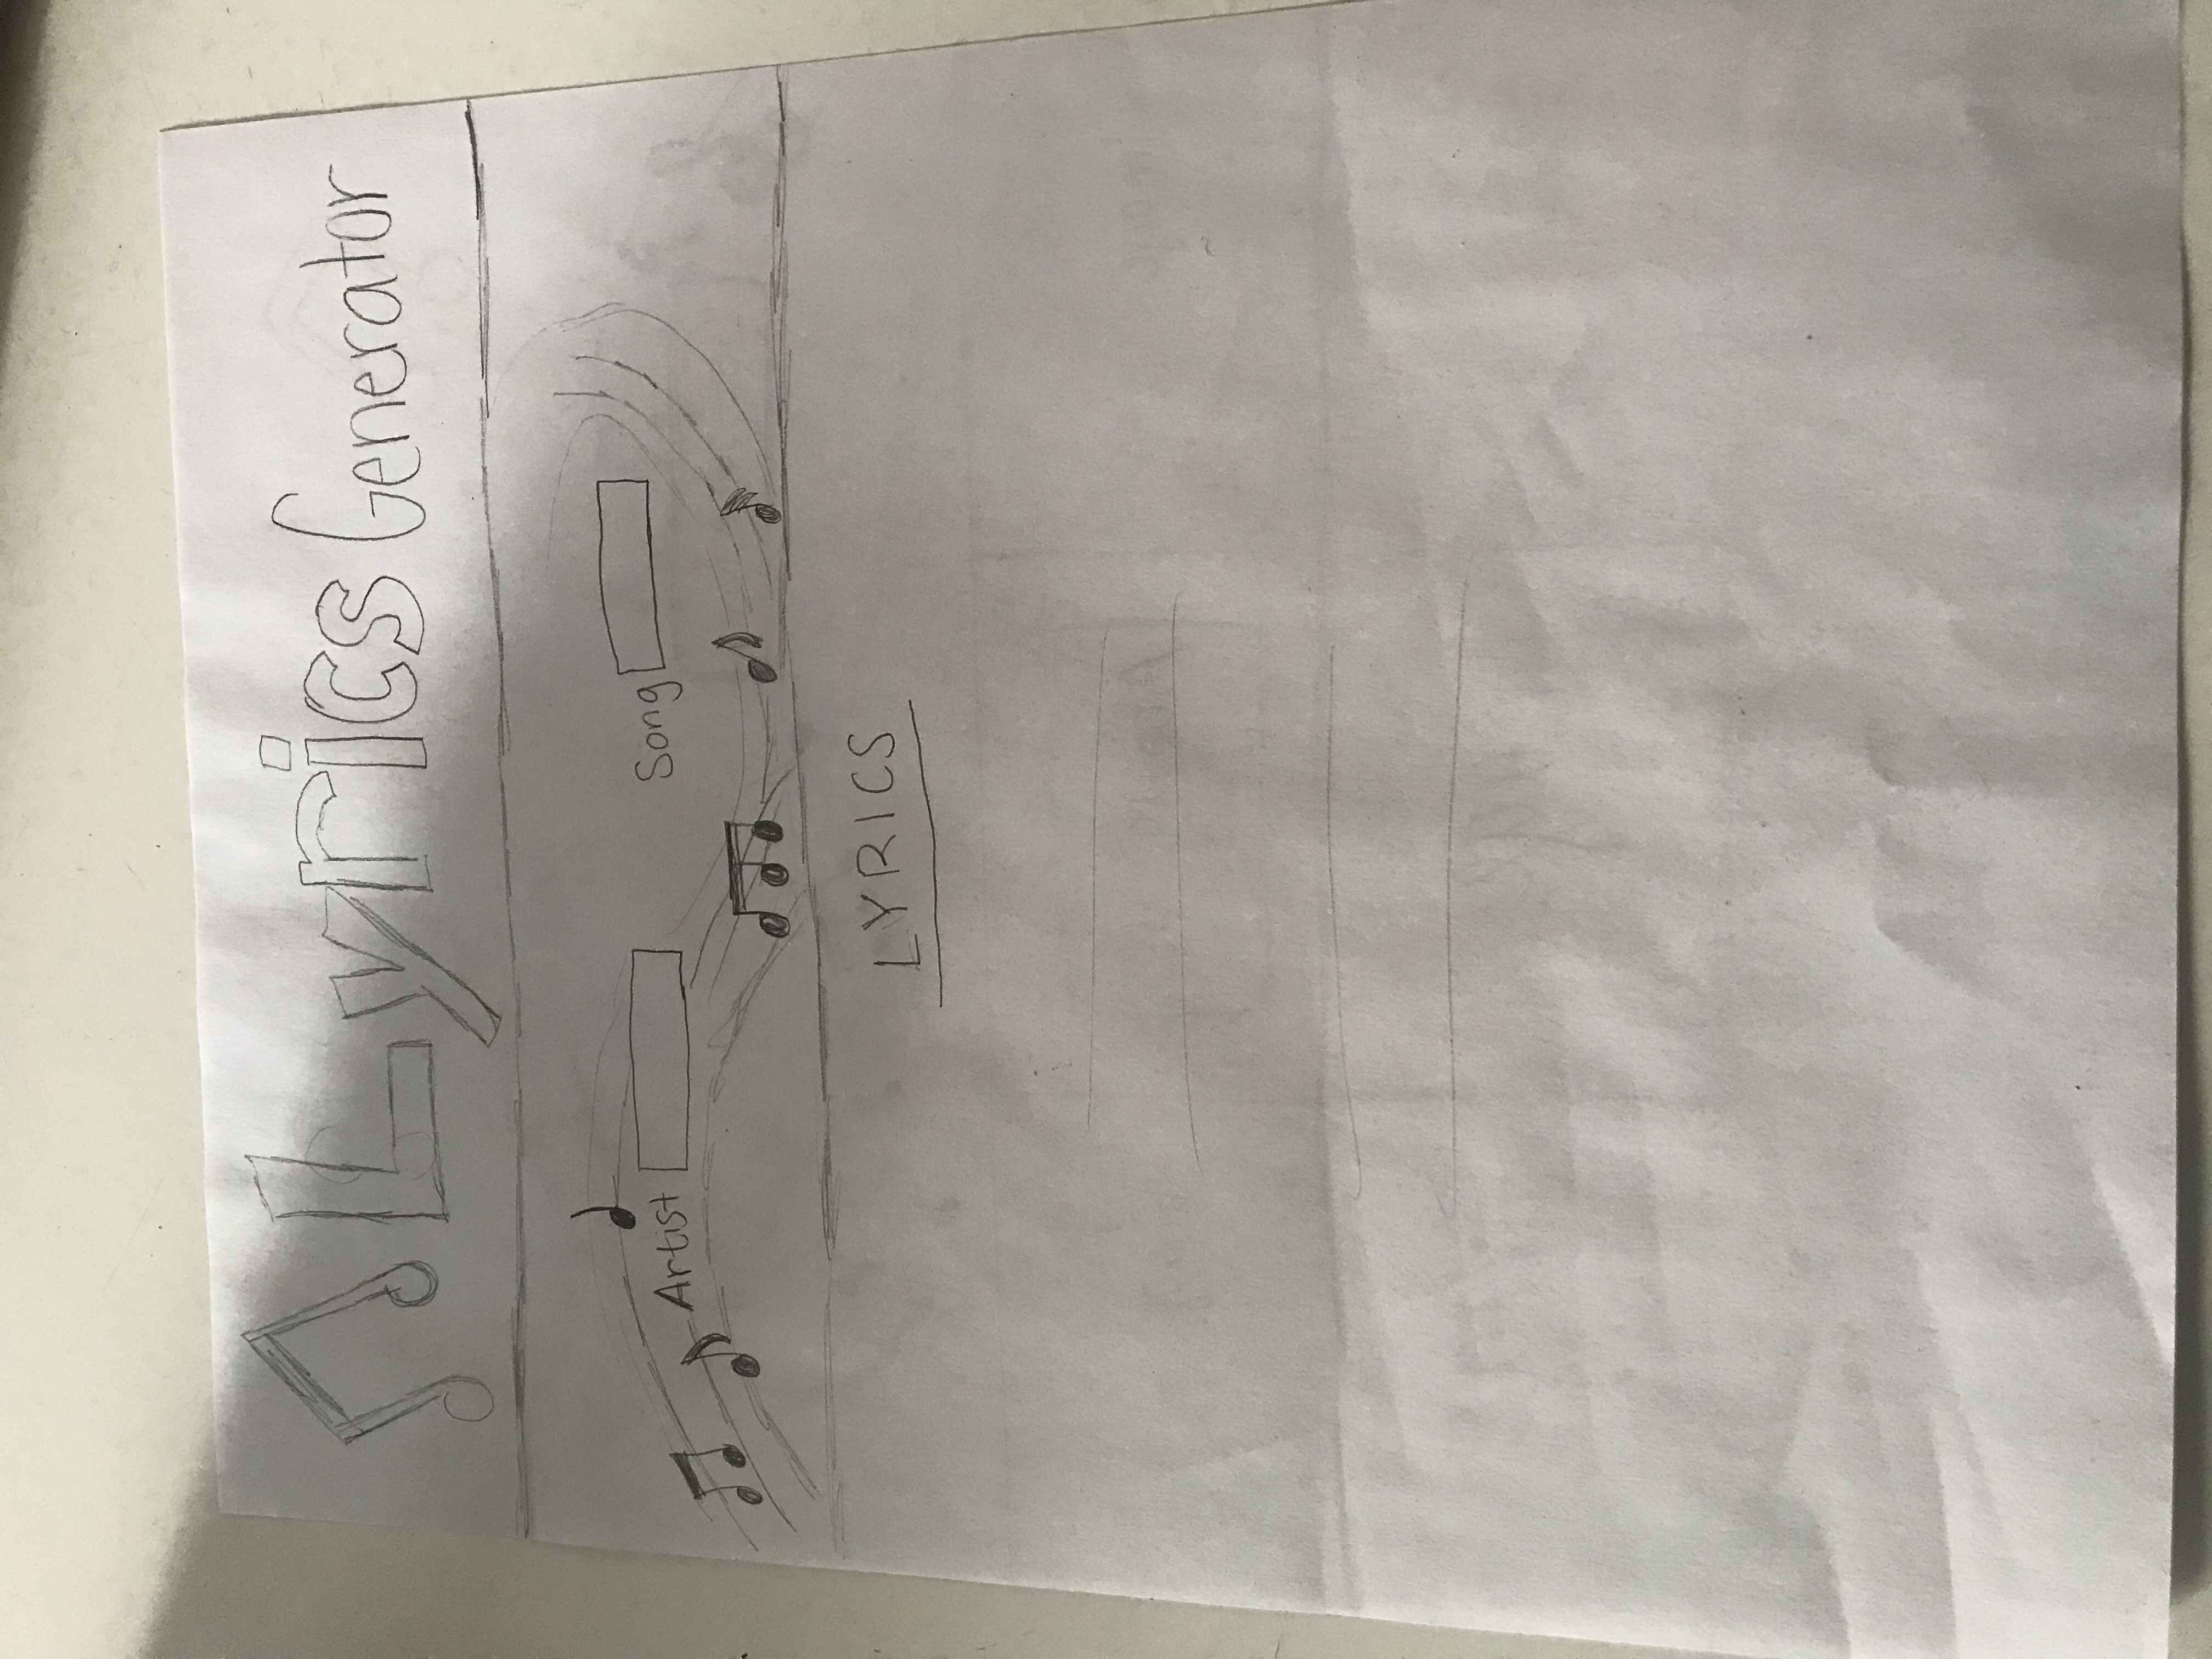 Lyrics Generator
Artist Song
LYRICS